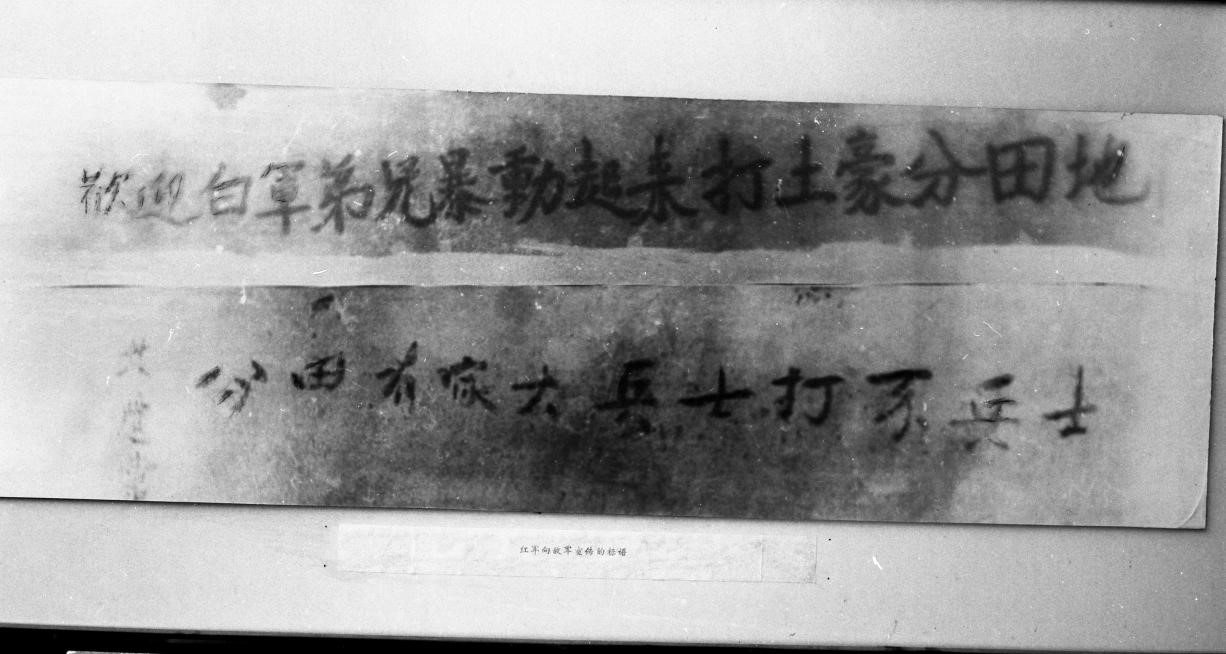 歡迎白軍弟兄暴動起来打土豪分田地
士兵不打士兵大家有田分
红军向敌军宣传的标语